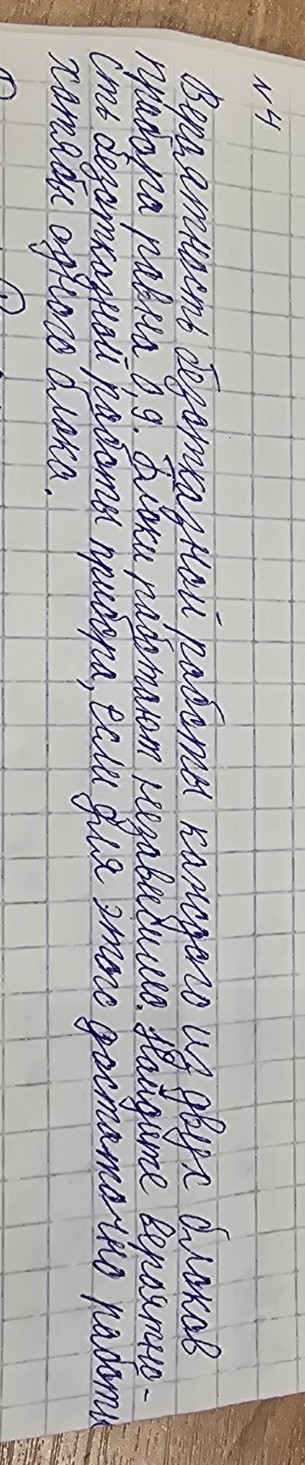 № 4
Вероятность безотказной работы каждого из двух блоков
прибора равна 0,9. Блоки работают независимо. Найдите вероятно-
сть безотказной работы прибора, если для этого достаточно работы
хотябы одного блока.